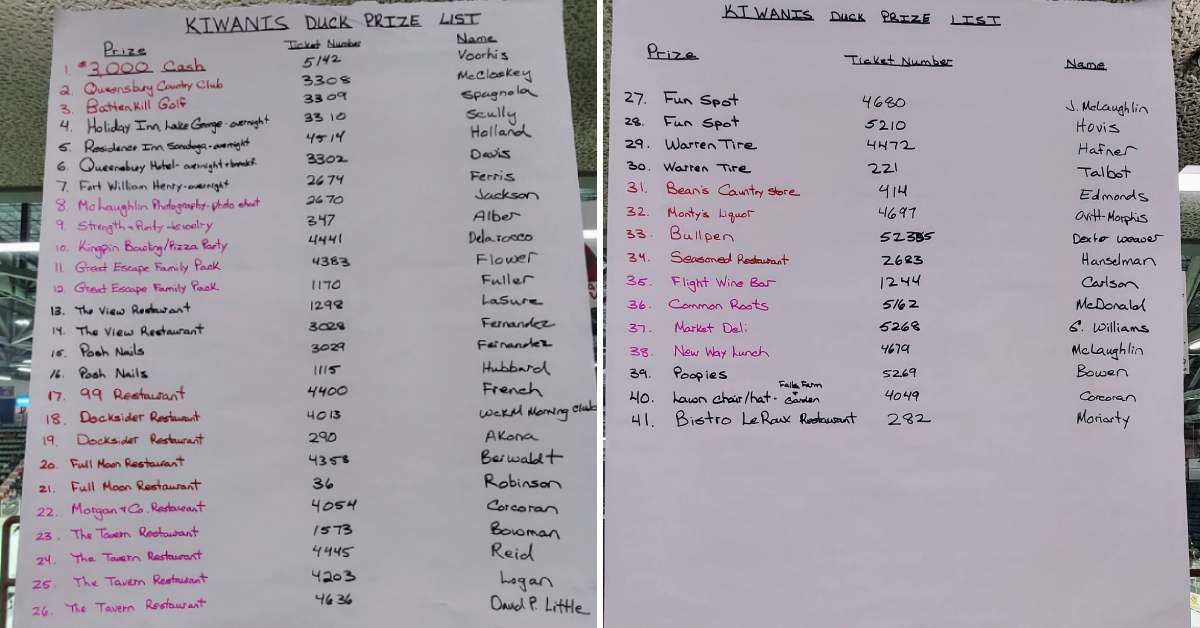 KIWANIS DUCK PRIZE LIST
Prize Ticket Number Name
1. $3,000 Cash 5142 Voorhis
2. Queensbury Country Club 3308 McCloskey
3. Battenkill Golf 3309 Spagnola
4. Holiday Inn, Lake George-overnight 3310 Scully
5. Residence Inn, Saratoga-overnight 4514 Holland
6. Queensbury Hotel-overnight + breakf. 3302 Davis
7. Fort William Henry-overnight 2674 Ferris
8. McLaughlin Photography-photo shoot 2670 Jackson
9. Strength + Purity-Jewelry 347 Alber
10. Kingpin Bowling/Pizza Party 4441 Delarocco
11. Great Escape Family Pack 4383 Flower
12. Great Escape Family Pack 1170 Fuller
13. The View Restaurant 1298 LaSure
14. The View Restaurant 3028 Fernandez
15. Posh Nails 3029 Fernandez
16. Posh Nails 1115 Hubbard
17. 99 Restaurant 4400 French
18. Docksider Restaurant 4013 WCKM Morning Club
19. Docksider Restaurant 290 Akona
20. Full Moon Restaurant 4358 Berwaldt
21. Full Moon Restaurant 36 Robinson
22. Morgan + Co. Restaurant 4054 Corcoran
23. The Tavern Restaurant 1573 Bowman
24. The Tavern Restaurant 4445 Reid
25. The Tavern Restaurant 4203 Logan
26. The Tavern Restaurant 4636 David P. Little
KIWANIS DUCK PRIZE LIST
Prize Ticket Number Name
27. Fun Spot 4680 J. McLaughlin
28. Fun Spot 5210 Hovis
29. Warren Tire 4472 Hafner
30. Warren Tire 221 Talbot
31. Bean's Country Store 914 Edmonds
32. Monty's Liquor 4697 Ovitt-Morphis
33. Bullpen Dexter Weaver
34. Seasoned Restaurant 2683 Hanselman
35. Flight Wine Bar 1244 Carlson
36. Common Roots 5162 McDonald
37. Market Deli 5268 S. Williams
38. New Way Lunch 4679 McLaughlin
39. Poopies 5269 Bowen
40. Lawn chair/hat- Falls Farm + Garden 4049 Corcoran
41. Bistro LeRoux Restaurant 282 Moriarty